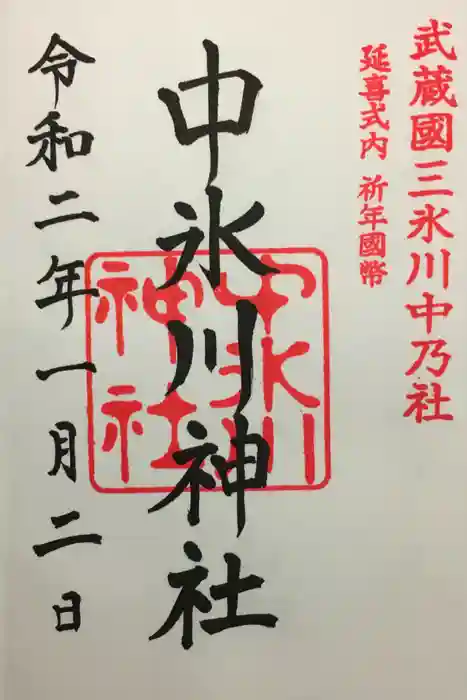 武蔵國三氷川中乃社
延喜式内 祈年國幣
中氷川神社
中氷川
神社
令和二年一月二日